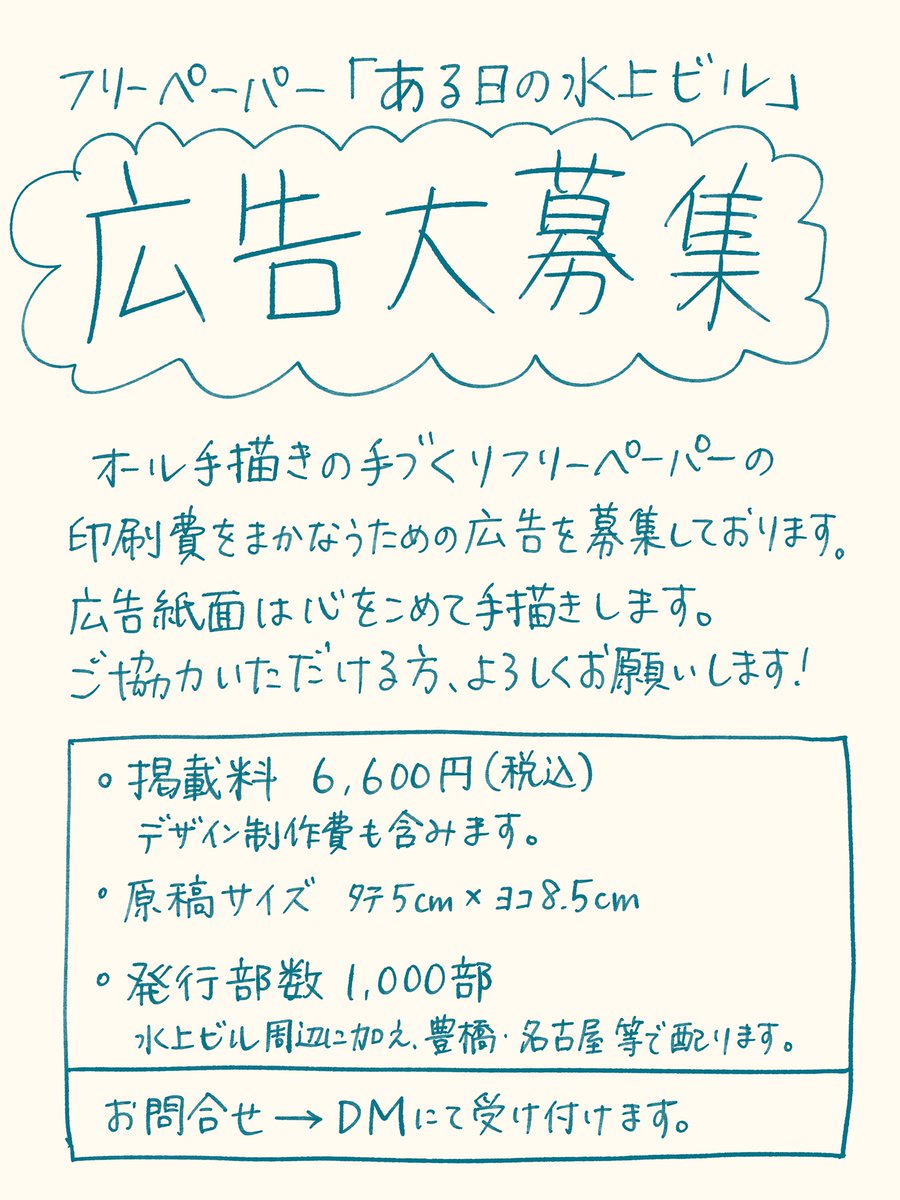 フリーペーパー「ある日の水上ビル」
広告大募集
オール手描きの手づくりフリーペーパーの
印刷費をまかなうための広告を募集しております。
広告紙面は心をこめて手描きします。
ご協力いただける方、よろしくお願いします!
○掲載料 6,600円(税込)
デザイン制作費も含みます。
○原稿サイズ タテ5cm×ヨコ8.5cm
○発行部数 1,000部
水上ビル周辺に加え、豊橋・名古屋等で配ります。
お問合せ→DMにて受け付けます。